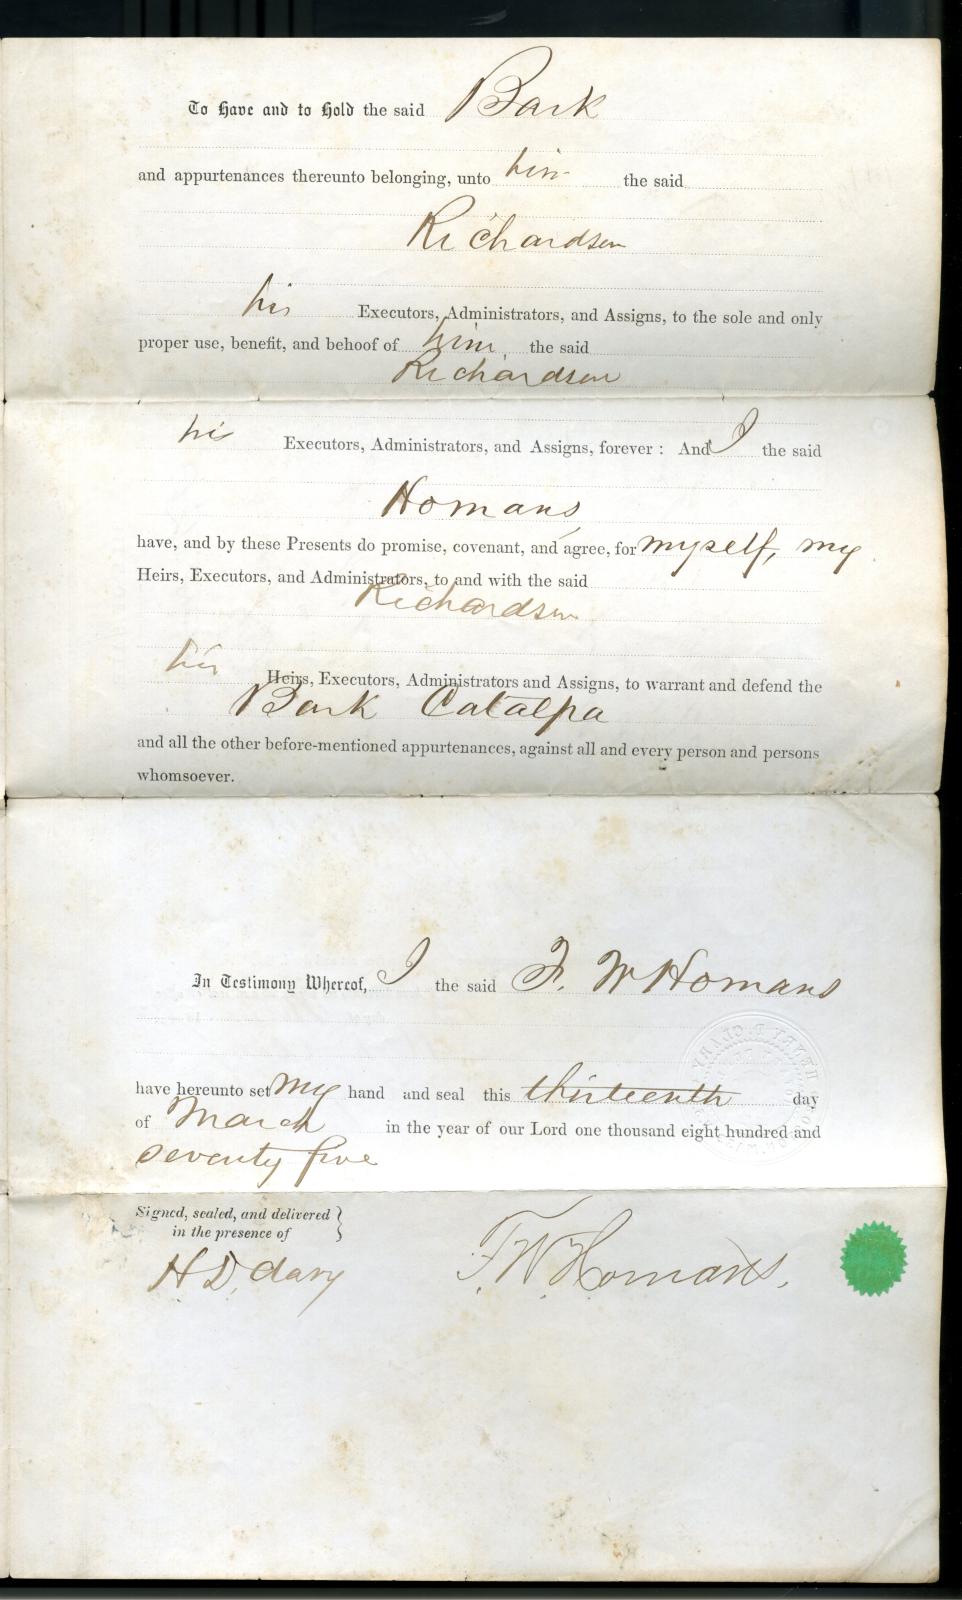 To Have and to Hold the said Bark
and appurtenances thereunto belonging, unto him the said
Richardson
his Executors, Administrators, and Assigns, to the sole and only
proper use, benefit, and behoof of him, the said
Richardson
his Executors, Administrators, and Assigns, forever : And I the said
Homans
have, and by these Presents do promise, covenant, and agree, for myself, my
Heirs, Executors, and Administrators, to and with the said
Richardson
his Heirs, Executors, Administrators and Assigns, to warrant and defend the
Bark Catalpa
and all the other before-mentioned appurtenances, against all and every person and persons
whomsoever.
In Testimony Whereof, I the said F. W Homans
have hereunto set my hand and seal this thirteenth day
of March in the year of our Lord one thousand eight hundred and
seventy five
Signed, sealed, and delivered
in the presence of
H. D. F. W. Homans.